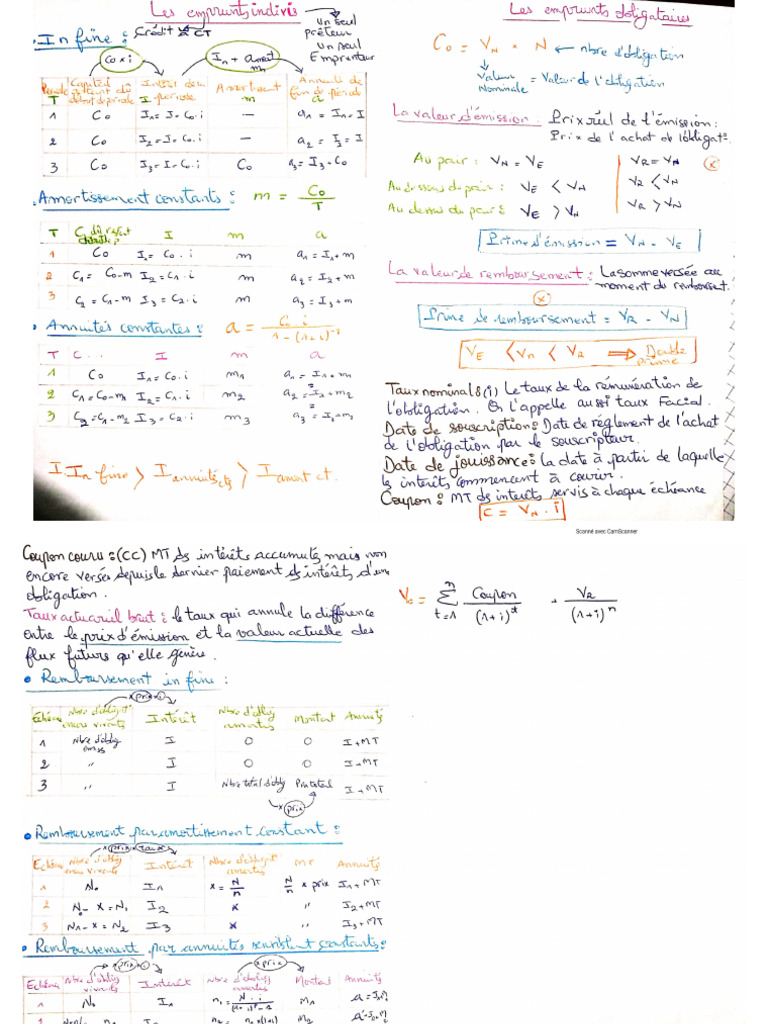 Les emprunts indivis
Un seul
prêteur
Un seul
Emprunteur
. In fine : Crédit CT
C₀ × i
Iₙ + amort
m
Période
T
Capital
restant dû
début de période
Intérêt de la
période
Amortissement
m
Annuité de
fin de période
a
1 C₀ I₁ = I = C₀.i — a₁ = I₁ = I
2 C₀ I₂ = I = C₀.i — a₂ = I = I
3 C₀ I₃ = I = C₀.i C₀ a₃ = I₃ + C₀
. Amortissement constants : m = C₀ / T
T C. dû I m a
1 C₀ I₁ = C₀.i m a₁ = I₁ + m
2 C₁ = C₀-m I₂ = C₁.i m a₂ = I₂ + m
3 C₂ = C₁-m I₃ = C₂.i m a₃ = I₃ + m
. Annuités constantes : a = C₀.i / 1-(1+i)⁻ᵀ
T C... I m a
1 C₀ I₁ = C₀.i m₁ a₁ = I₁ + m₁
2 C₁ = C₀-m₁ I₂ = C₁.i m₂ a₂ = I₂ + m₂
3 C₂ = C₁-m₂ I₃ = C₂.i m₃ a₃ = I₃ + m₃
I In fine > I annuités ctes > I amort ct.
Les emprunts obligataires
C₀ = V_N × N ← nbre d'obligation
Valeur
Nominale = Valeur de l'obligation
La valeur d'émission : Prix réel de l'émission :
Prix de l'achat de l'obligat°.
Au pair : V_N = V_E V_R = V_N
Au dessous du pair : V_E < V_N V_R < V_N
Au dessus du pair : V_E > V_N V_R > V_N
Prime d'émission = V_N - V_E
La valeur de remboursement : La somme versée au
moment du remboursent.
Prime de remboursement = V_R - V_N
V_E < V_N < V_R ⇒ Double
prime
Taux nominal : (i) Le taux de la rémunération de
l'obligation. On l'appelle aussi taux Facial.
Date de souscription : Date de réglement de l'achat
de l'obligation par le souscripteur.
Date de jouissance : la date à partir de laquelle
ls intérêts commencent à courir.
Coupon : MT ds intérêts servis à chaque échéance
C = V_N . i
Scanné avec CamScanner
Coupon couru : (CC) MT ds intérêts accumulés mais non
encore versés depuis le dernier paiement ds intérêts d'une
obligation.
Taux actuariel brut : le taux qui annule la différence
entre le prix d'émission et la valeur actuelle des
flux futurs qu'elle génère.
• Remboursement in fine :
× prix × i
Echéance Nbre d'obligat° encore vivantes Intérêt Nbre d'oblig amorties Montant Annuités
1 Nbre d'oblig émises I 0 0 I + MT
2 " I 0 0 I + MT
3 " I Nbre total d'oblig Prix total I + MT
× prix
• Remboursement par amortissement constant :
× prix × taux
Echéan Nbre d'oblig vivantes Intérêt Nbre d'obligat amorties MT Annuités
1 N₀ I₁ x = N/n N/n × prix I₁ + MT
2 N₀ - x = N₁ I₂ x " I₂ + MT
3 N₁ - x = N₂ I₃ x " I₃ + MT
• Remboursement par annuités sensiblent constantes :
× prix × i
× prix
Echéan Nbre d'oblig vivantes Intérêt Nbre d'oblig amorties Montant Annuités
1 N₀ I₁ n₁ = N.i / (1+i)ⁿ-1 M₁
V₀ = Σ (t=1, n) Coupon / (1+i)ᵗ + V_R / (1+i)ⁿ